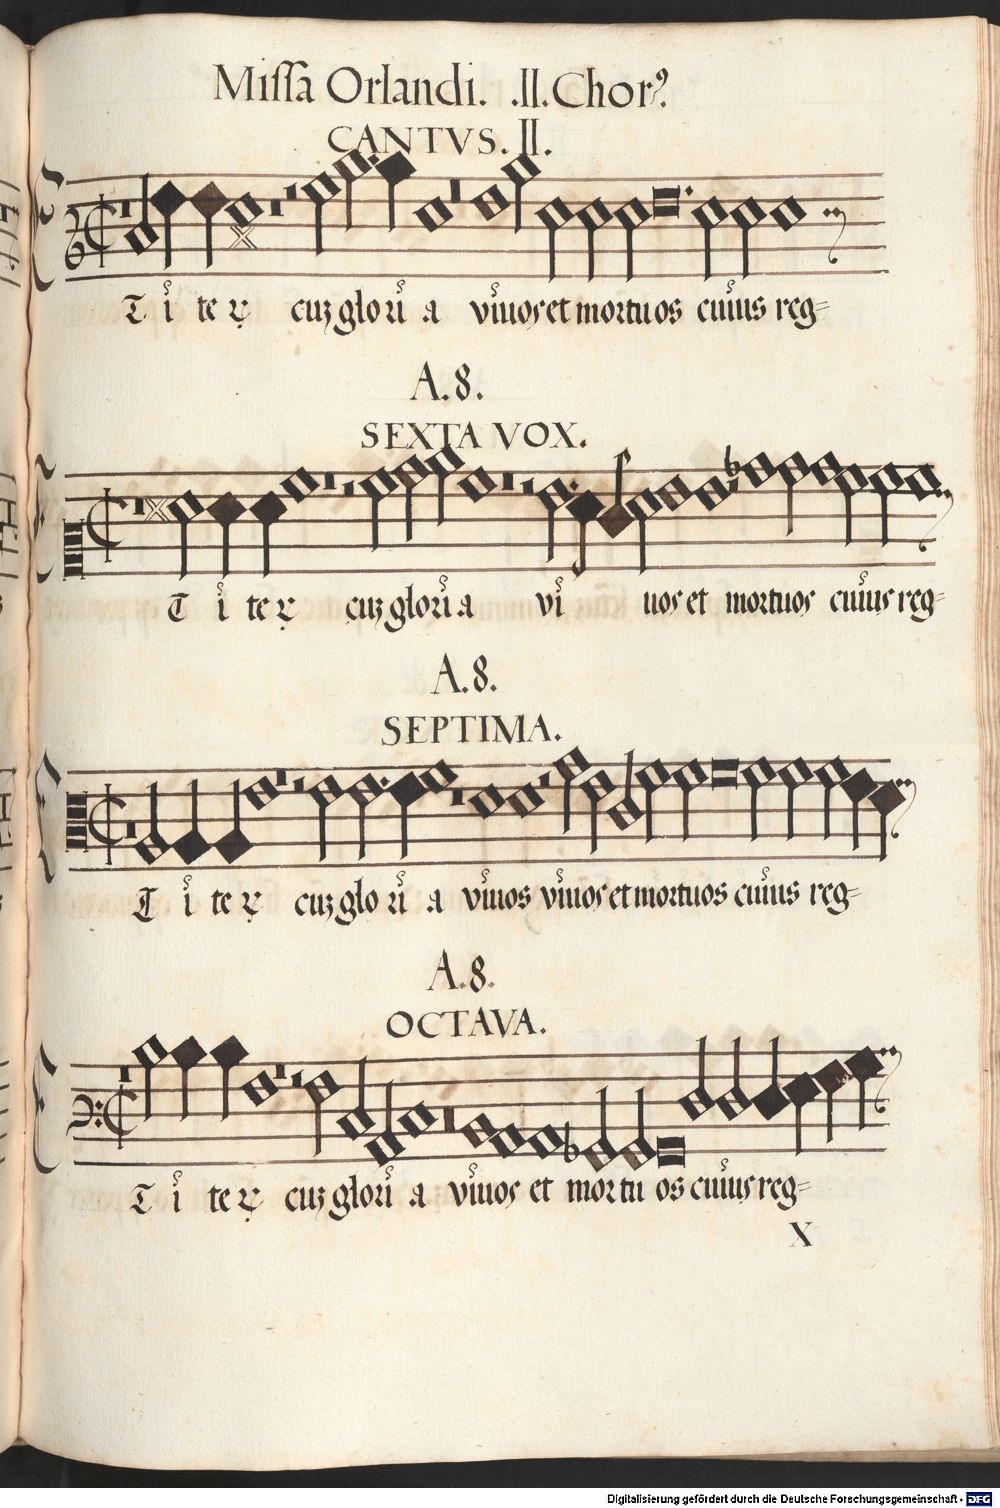 Missa Orlandi. .II. Chorꝰ.
CANTVS. II.
ET i te rꝫ cuꝫ glo ri a viuos et mortuos cuius reg=
A. 8.
SEXTA VOX.
ET i te rꝫ cuꝫ gloria vi uos et mortuos cuius reg=
A. 8.
SEPTIMA.
ET i te rꝫ cuꝫ glo ri a viuos viuos et mortuos cuius reg=
A. 8.
OCTAVA.
ET i te rꝫ cuꝫ glori a viuos et mortu os cuius reg=
X
Digitalisierung gefördert durch die Deutsche Forschungsgemeinschaft - DFG